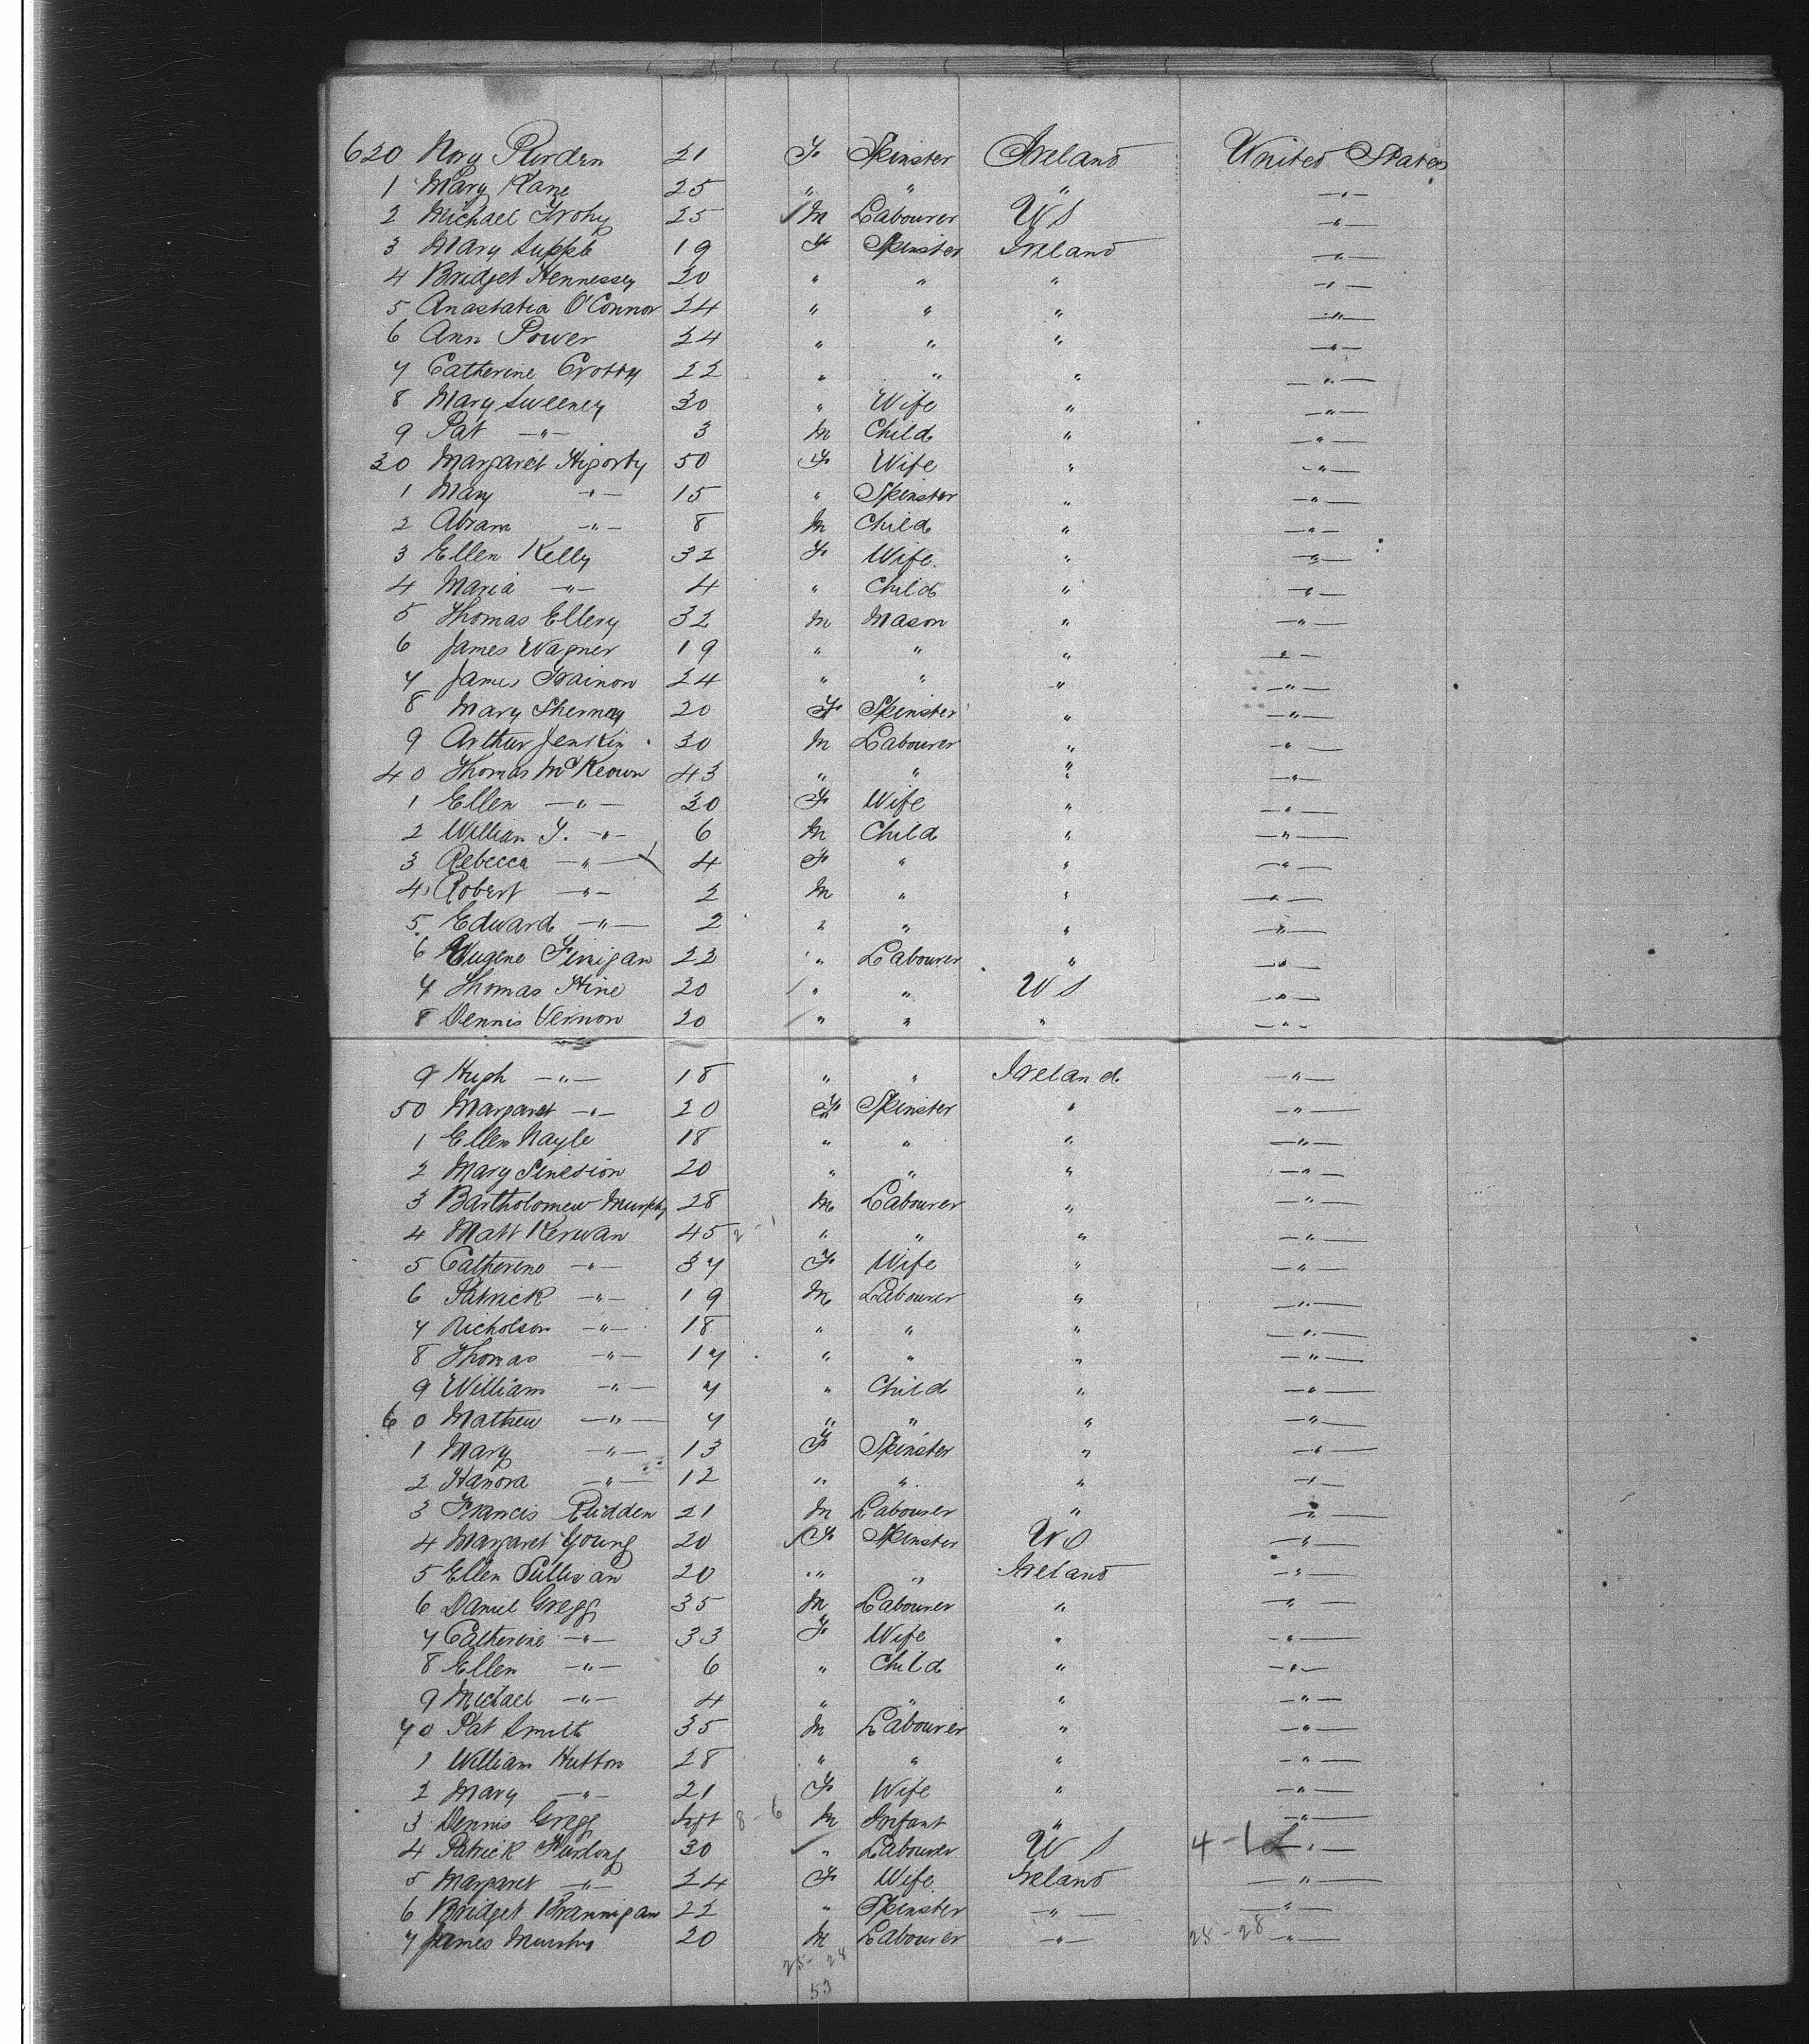 620 Nory Purden 21 F. Spinster Ireland United States
1 Mary Kane 25 " " " —"—
2 Michael Trohy 25 M Labourer US —"—
3 Mary Supple 19 F Spinster Ireland —"—
4 Bridget Hennessey 20 " " " —"—
5 Anastatia O'Connor 24 " " " —"—
6 Ann Power 24 " " " —"—
7 Catherine Crotty 22 " " " —"—
8 Mary Sweeney 30 " Wife " —"—
9 Pat —"— 3 M Child " —"—
30 Margaret 50 F Wife " —"—
1 Mary —"— 15 " Spinster " —"—
2 Abram —"— 8 M Child " —"—
3 Ellen Kelly 32 F Wife " —"—
4 Maria —"— 4 " Child " —"—
5 Thomas Ellery 32 M Mason " —"—
6 James Wagner 19 " " " —"—
7 James Trainon 24 " " " —"—
8 Mary 20 F Spinster " —"—
9 Arthur Jenkin 30 M Labourer " —"—
40 Thomas McKeown 43 " " " —"—
1 Ellen —"— 30 F Wife " —"—
2 William J. —"— 6 M Child " —"—
3 Rebecca —"— 4 F " " —"—
4 Robert —"— 2 M " " —"—
5 Edward —"— 2 " " " —"—
6 Eugene Finigan 22 " Labourer " —"—
7 Thomas Hine 20 " " US —"—
8 Dennis Vernon 20 " " " —"—
9 Hugh —"— 18 " " Ireland —"—
50 Margaret —"— 20 F Spinster " —"—
1 Ellen Nayle 18 " " " —"—
2 Mary 20 " " " —"—
3 Bartholomew Murphy 28 M Labourer " —"—
4 Matt Kerwan 45 " " " —"—
5 Catherine —"— 37 F Wife " —"—
6 Patrick —"— 19 M Labourer " —"—
7 Nicholson —"— 18 " " " —"—
8 Thomas —"— 17 " " " —"—
9 William —"— 7 " Child " —"—
60 Mathew —"— 7 " " " —"—
1 Mary —"— 13 F Spinster " —"—
2 Hanora —"— 12 " " " —"—
3 Francis Clidden 21 M Labourer " —"—
4 Margaret Young 20 F Spinster US —"—
5 Ellen Sullivan 20 " " Ireland —"—
6 Daniel Gregg 35 M Labourer " —"—
7 Catherine —"— 33 F Wife " —"—
8 Ellen —"— 6 " Child " —"—
9 Michael —"— 4 " " " —"—
70 Pat Smith 35 M Labourer " —"—
1 William Hutton 28 " " " —"—
2 Mary —"— 21 F Wife " —"—
3 Dennis Gregg Inft 8-6 M Infant " —"—
4 Patrick Furlong 30 " Labourer US 4-1 —"—
5 Margaret —"— 24 F Wife Ireland —"—
6 Bridget Brannigan 22 " Spinster —"— —"—
7 James Murphy 20 M Labourer —"— 25-28 —"—
25-28
53